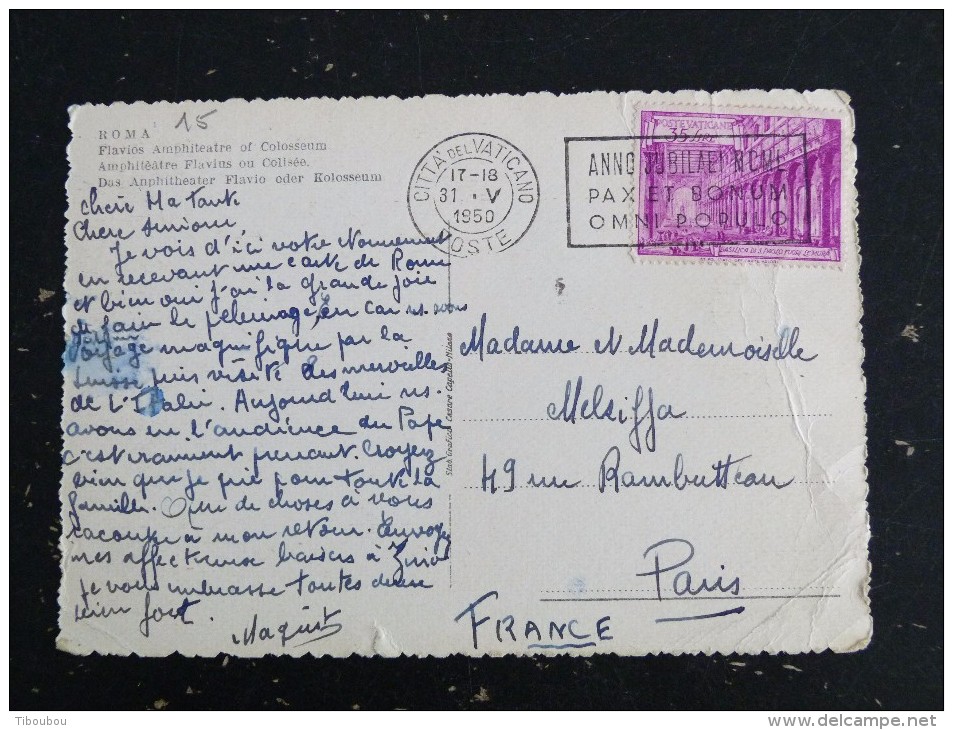 ROMA
15
Flavios Amphiteatre of Colosseum
Amphitéâtre Flavius ou Colisée.
Das Anphitheater Flavio oder Kolosseum
Chère Ma Tante
Chère
Je vois d'ici votre étonnement
en recevant une carte de Rome
et bien oui j'ai la grande joie
de faire le pèlerinage, En car ns. avons
voyage magnifique par la
Suisse puis visité les merveilles
de L'Italie. Aujourd'hui ns.
avons eu l'audience du Pape
c'est vraiment prenant. Croyez
bien que je prie pour toute la
famille. Que de choses à vous
raconter à mon retour. Envoyez
mes affectueux baisers à
je vous embrasse toutes deux
bien fort.
CITTÀ DEL VATICANO
17-18
31 . V
1950
POSTE
ANNO JUBILAEI NCML
PAX ET BONUM
OMNI POPULO
POSTE VATICANE
35
BASILICA DI S. PAOLO FUORI LE MURA
Stab. Grafico Cesare Capello-Milano
Madame et Mademoiselle
Melsiffa
49 rue Rambutteau
Paris
FRANCE
Tiboubou
www.delcampe.net